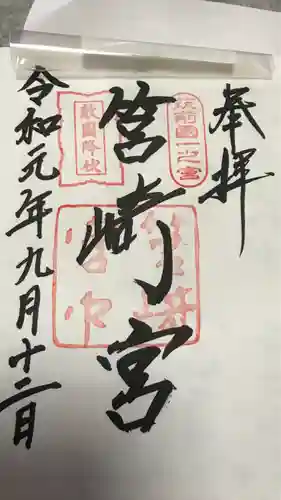 奉拝
筑前國一之宮
筥崎宮
敵國降伏
令和元年九月十二日